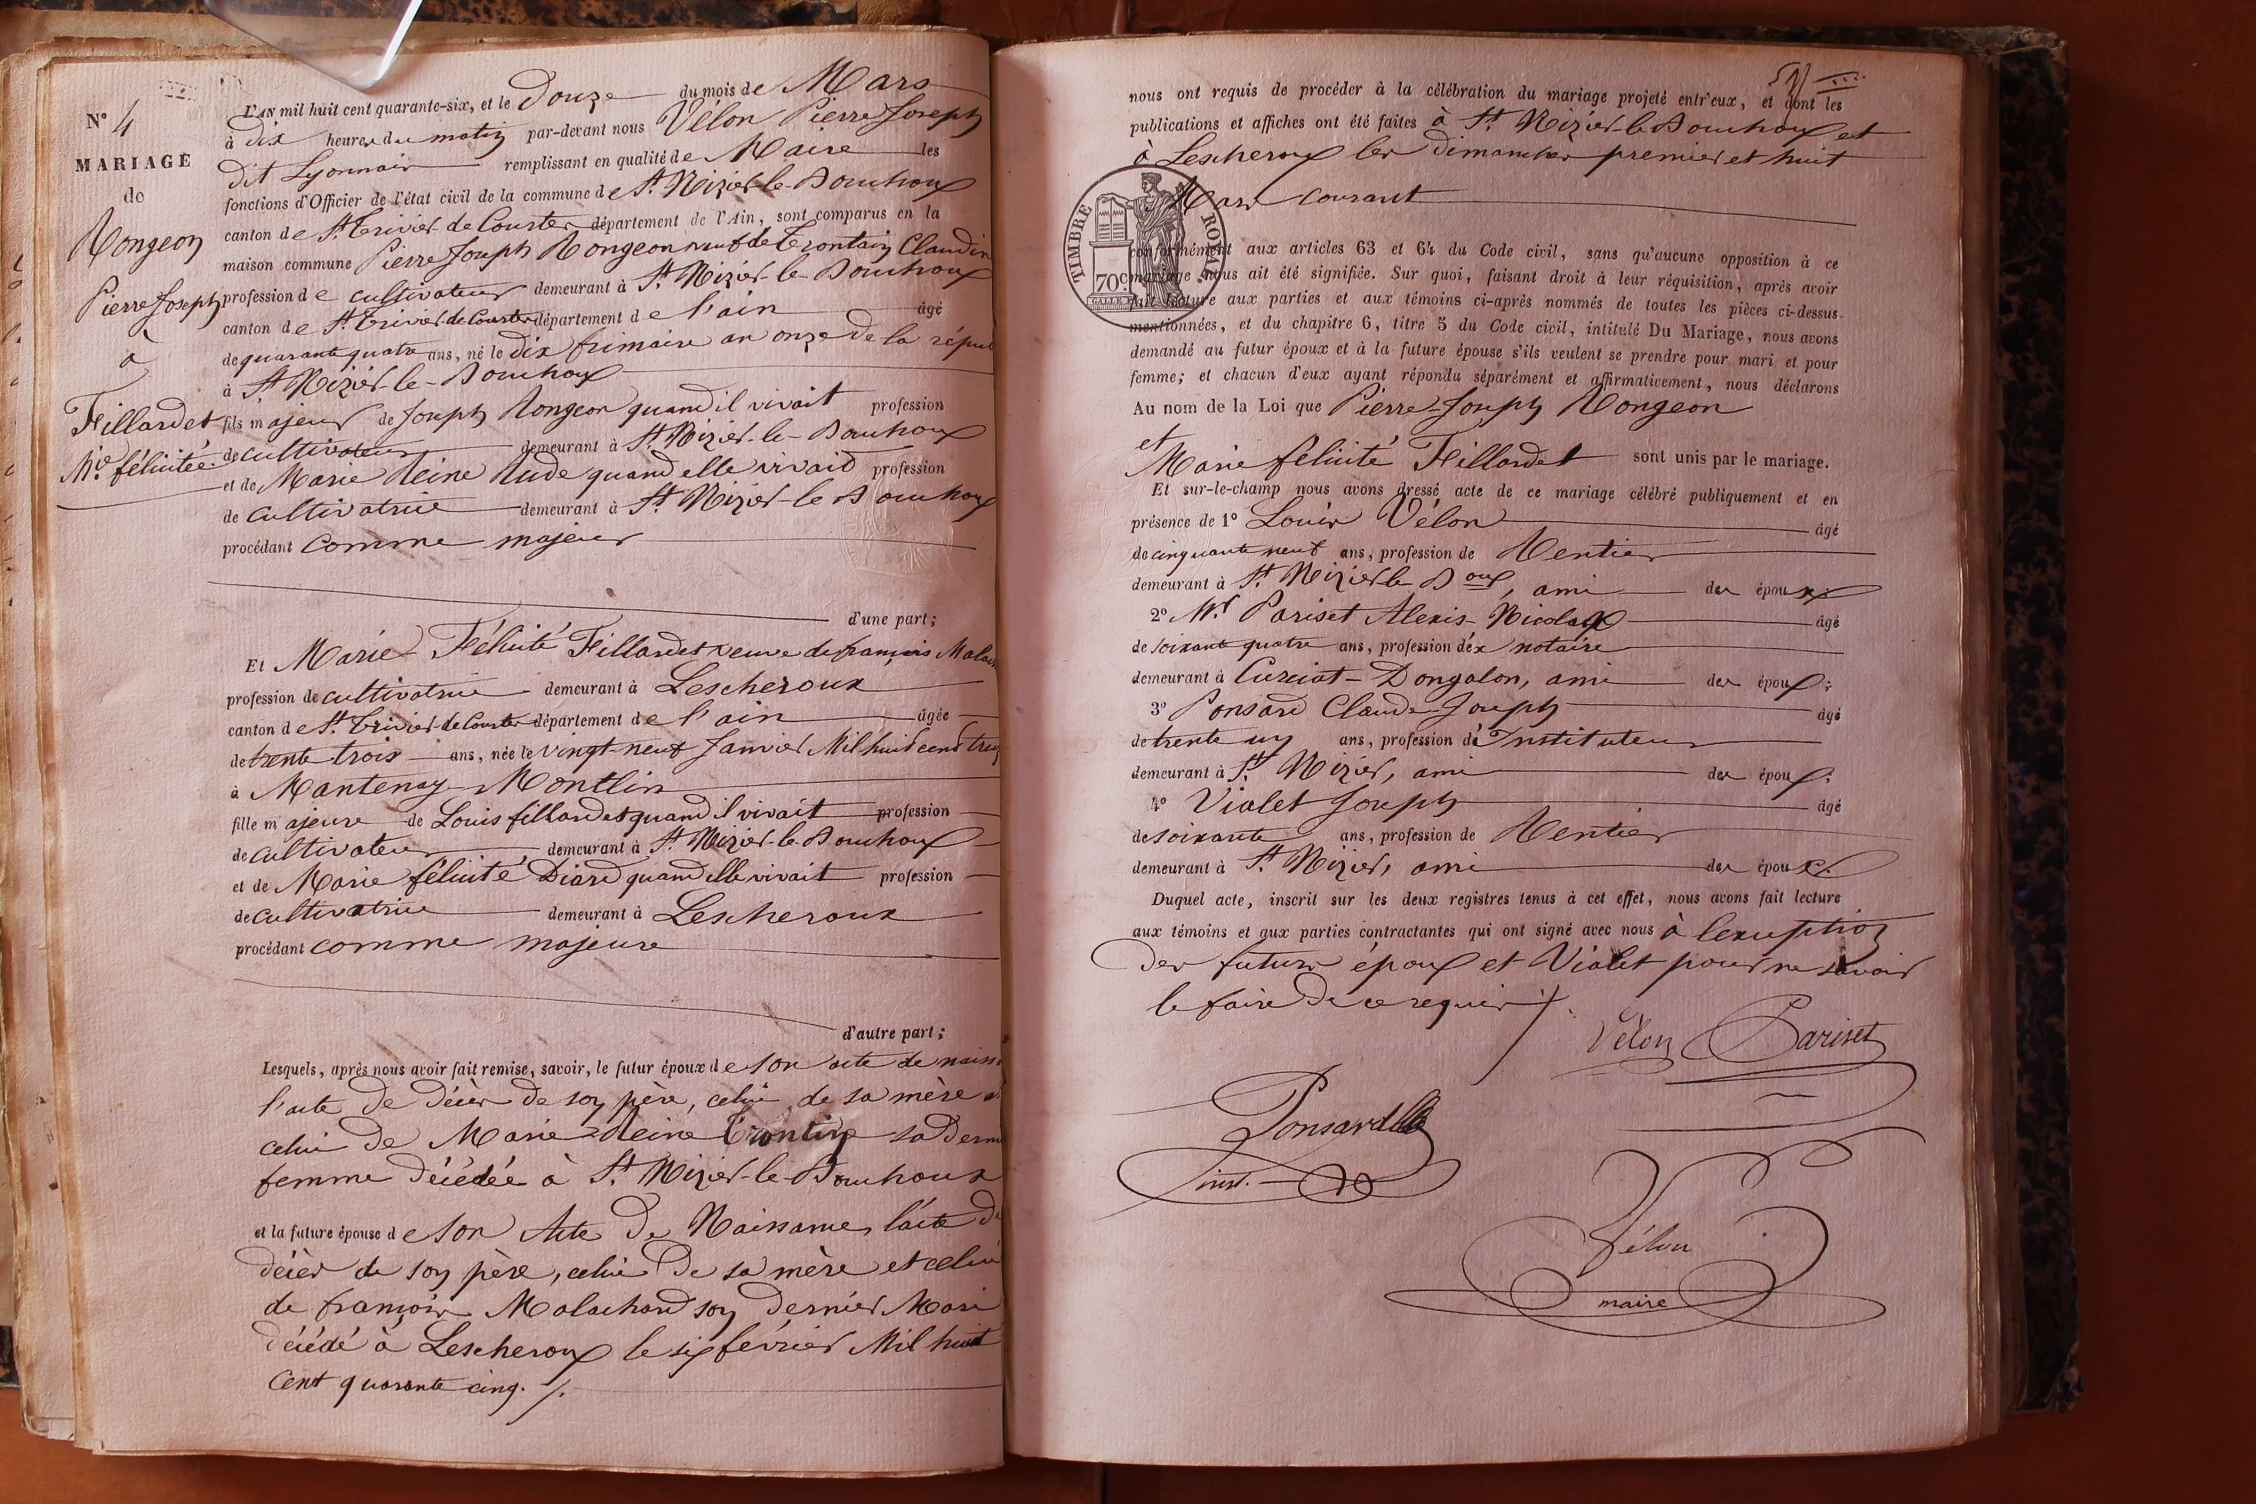 N° 4
MARIAGE
de
Rongeon
Pierre Joseph
à
Fillardet
Mie félicitée
L'AN mil huit cent quarante-six, et le Douze du mois de Mars
à Dix heures du matin par-devant nous Vélon Pierre Joseph
Dit Lyonnais remplissant en qualité de Maire les
fonctions d'Officier de l'état civil de la commune de St Nizier-le-Bouchoux
canton de St Trivier-de Courtes département de l'Ain, sont comparus en la
maison commune Pierre Joseph Rongeon veuf de Trontain Claudin
profession de cultivateur demeurant à St Nizier-le-Bouchoux
canton de St Trivier de Courtes département de l'ain âgé
de quarante quatre ans, né le dix frimaire an onze De la répu
à St Nizier-le-Bouchoux
fils majeur de Joseph Rongeon quand il vivait profession
de cultivateur demeurant à St Nizier-le-Bouchoux
et de Marie Reine Rude quand elle vivait profession
de cultivatrice demeurant à St Nizier-le Bouchoux
procédant comme majeur
d'une part;
Et Marie Félicité Fillardet veuve de françois Malach
profession de cultivatrice demeurant à Lescheroux
canton de St Trivier-de Courtes département de l'ain âgée
de trente trois ans, née le vingt neuf Janvier Mil huit cent trei
à Mantenay-Montlin
fille majeure de Louis fillardet quand il vivait profession
de cultivateur demeurant à St Nizier-le-Bouchoux
et de Marie félicité Diard quand elle vivait profession
de cultivatrice demeurant à Lescheroux
procédant comme majeure
d'autre part;
Lesquels, après nous avoir fait remise, savoir, le futur époux de son acte de naiss
l'acte De Décès De son père, celui de sa mère et
celui De Marie Reine Trontin sa Derni
femme Décédée à St Nizier-le-Bouchoux
et la future épouse de son Acte De Naissance, l'acte De
décès de son père, celui De sa mère et celui
de françois Malachard son Dernier Mari
Décédé à Lescheroux le six février Mil huit
Cent quarante cinq. /.
nous ont requis de procéder à la célébration du mariage projeté entr'eux, et dont les
publications et affiches ont été faites à St Nizier-le-Bouchoux et
à Lescheroux les dimanches premier et huit
Mars courant
TIMBRE ROYAL
70c
conformément aux articles 63 et 64 du Code civil, sans qu'aucune opposition à ce
mariage nous ait été signifiée. Sur quoi, faisant droit à leur réquisition, après avoir
fait lecture aux parties et aux témoins ci-après nommés de toutes les pièces ci-dessus
mentionnées, et du chapitre 6, titre 5 du Code civil, intitulé Du Mariage, nous avons
demandé au futur époux et à la future épouse s'ils veulent se prendre pour mari et pour
femme; et chacun d'eux ayant répondu séparément et affirmativement, nous déclarons
Au nom de la Loi que Pierre-Joseph Rongeon
et
Marie félicité Fillardet sont unis par le mariage.
Et sur-le-champ nous avons dressé acte de ce mariage célébré publiquement et en
présence de 1° Louis Vélon âgé
de cinquante neuf ans, profession de Rentier
demeurant à St Nizier le Boux, ami des époux;
2° Mr Pariset Alexis-Nicolas âgé
de soixante quatre ans, profession d'éx notaire
demeurant à Curciat-Dongalon, ami des époux;
3° Ponsard Claude Joseph âgé
de trente un ans, profession d'Instituteur
demeurant à St Nizier, ami des époux;
4° Vialet Joseph âgé
de soixante ans, profession de Rentier
demeurant à St Nizier, ami des époux.
Duquel acte, inscrit sur les deux registres tenus à cet effet, nous avons fait lecture
aux témoins et aux parties contractantes qui ont signé avec nous à lexception
Des futurs époux et Vialet pour ne savoir
le faire De ce requis /.
Vélon Pariset
Ponsard
inst.
Vélon
maire